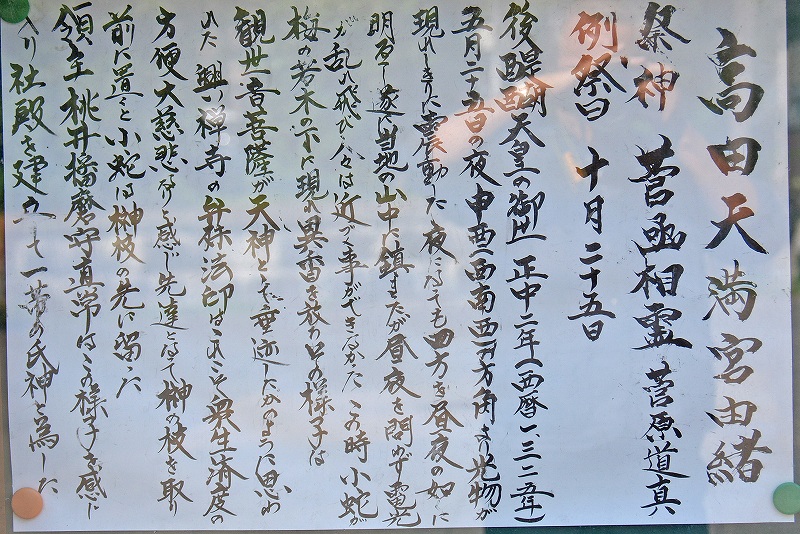 高田天満宮由緒
祭神 菅凾相霊 菅原道真
例祭日 十月二十五日
後醍醐天皇の御世 正中二年(西暦一、三二五年)
五月二十五日の夜申酉(西南西)方角より光物が
現れしきりに震動した夜になても四方を昼夜の如くに
明るし遂に当地の山中に鎮またが昼夜を問わず電光
が乱れ飛び人々は近づく事ができなかた この時小蛇が
梅の若木の下に現れ異香を放ちその様子は
観世音菩薩が天神とそ垂迹したかのように思わ
れた 興禅寺の弁珠法印はこれこそ衆生済度の
方便大慈悲なりと感じ先達となて榊の枝を取り
前に進むと小蛇は榊枝の先に留った
領主桃井播磨守直常はこの様子を感じ
入り社殿を建立して一帯の氏神と為した